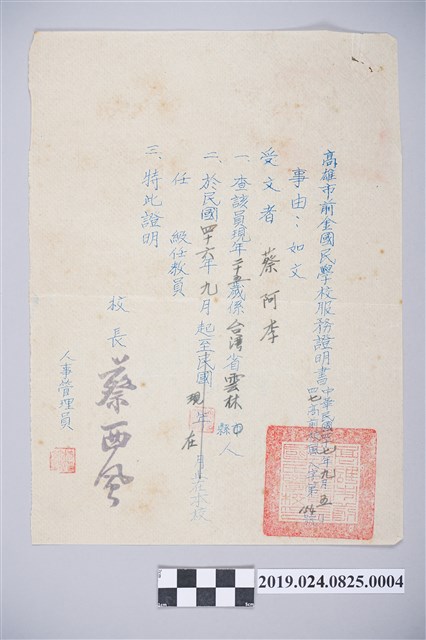 高雄市前金國民學校服務證明書
中華民國四七年九月五
事由：如文
受文者 蔡阿李
一、查該員現年二十五歲係台灣省雲林縣人
二、於民國四十六年九月起至民國現在
任 級任教員
三、特此證明
校長 蔡西風
人事管理員
2019.024.0825.0004